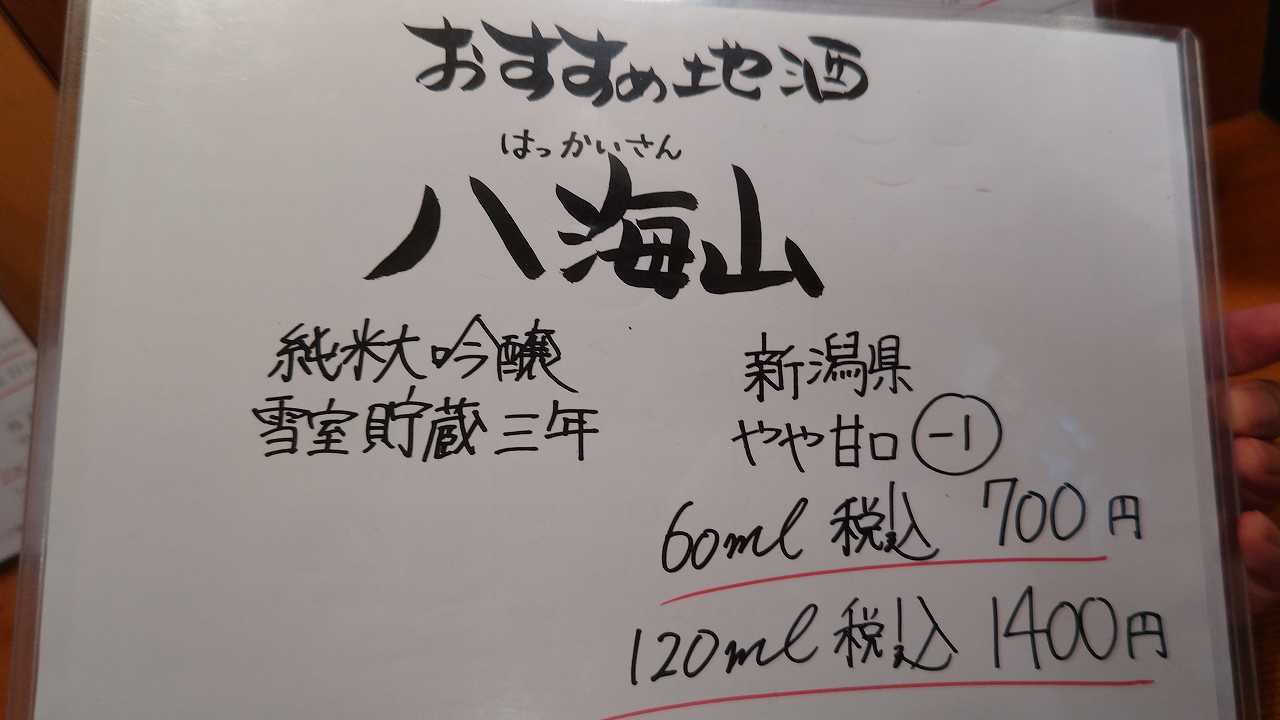 おすすめ地酒
はっかいさん
八海山
純米大吟醸
雪室貯蔵三年
新潟県
やや甘口 -1
60ml 税込 700円
120ml 税込 1400円